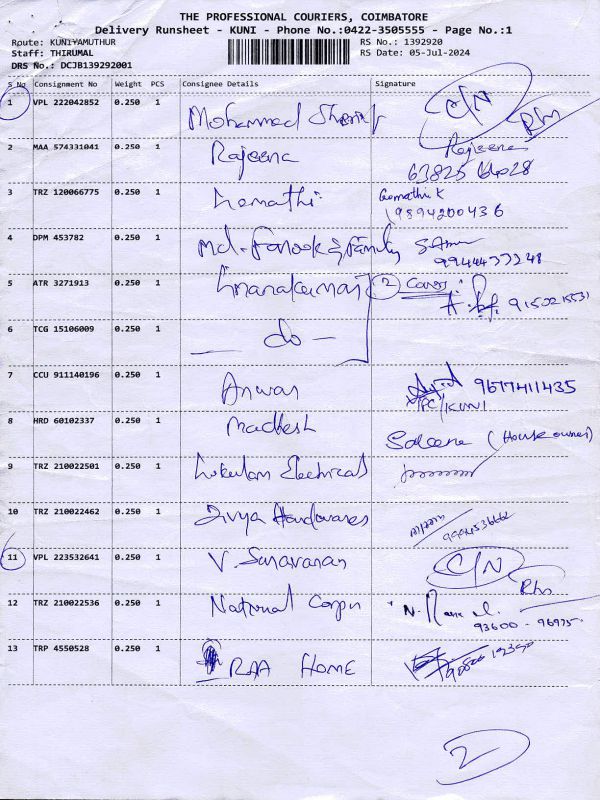 THE PROFESSIONAL COURIERS, COIMBATORE
Delivery Runsheet - KUNI - Phone No.:0422-3505555 - Page No.:1
Route: KUNIYAMUTHUR
RS No.: 1392920
Staff: THIRUMAL
RS Date: 05-Jul-2024
DRS No.: DCJB139292001
S No Consignment No Weight PCS Consignee Details Signature
1 VPL 222042852 0.250 1 Mohammed C/N
2 MAA 574331041 0.250 1 Rajeena Rajeena
3 TRZ 120066775 0.250 1 Gomathi K
9894200436
4 DPM 453782 0.250 1 Md. Farook & Family
9944477248
5 ATR 3271913 0.250 1 2 Covers
9150215531
6 TCG 15106009 0.250 1 — do —
7 CCU 911140196 0.250 1 Anwar 9677411435
TPC/KUNI
8 HRD 60102337 0.250 1 Madhesh (House owner)
9 TRZ 210022501 0.250 1 Electricals
10 TRZ 210022462 0.250 1 Divya Hardwares
11 VPL 223532641 0.250 1 V. Saravanan C/N
12 TRZ 210022536 0.250 1 National
93600 - 96975
13 TRP 4550528 0.250 1 RAA HOME
2